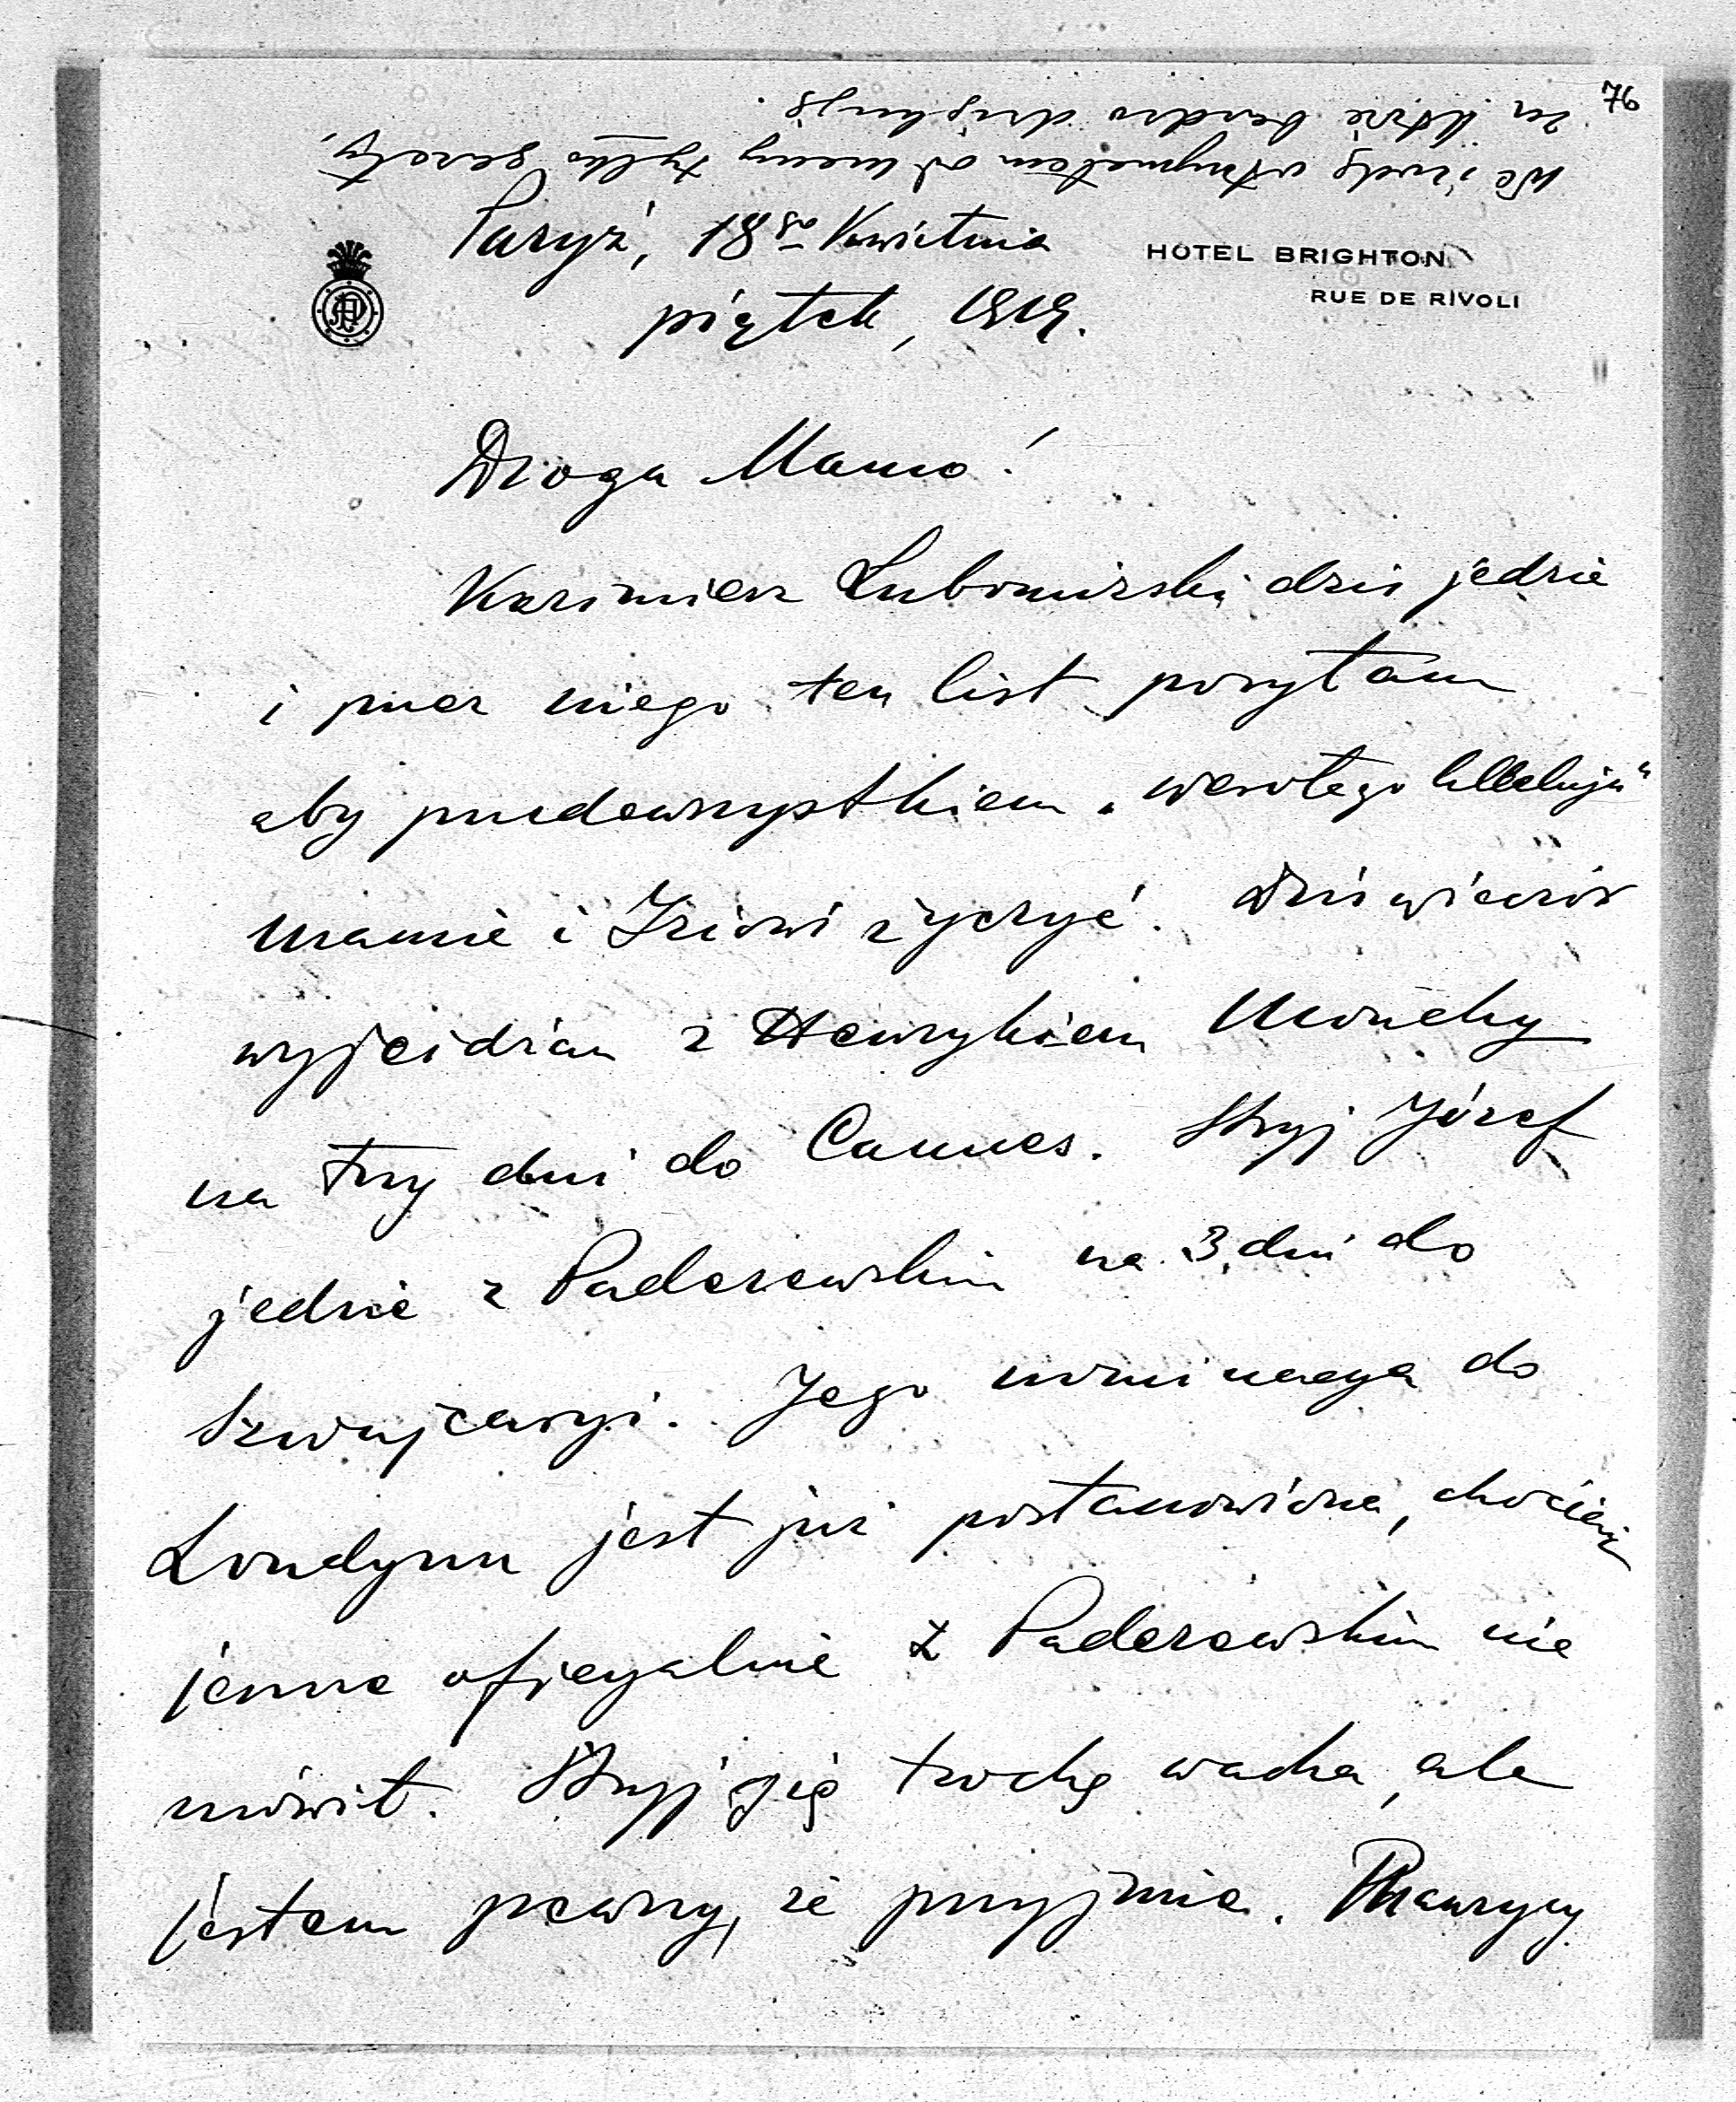 76
We środę otrzymałem od mamy tylko gazety,
za które bardzo dziękuję.
Paryż, 18go Kwietnia
HOTEL BRIGHTON
RUE DE RIVOLI
piątek, 1919.
Droga Mamo!
Kazimierz Lubomirski dziś jedzie
i przez niego ten list posyłam
aby przedewszystkiem „wesołego Alleluja"
Mamie i Iziowi życzyć. Dziś wieczór
wyjeżdżam z Henrykiem
na trzy dni do Cannes. Stryj Józef
jedzie z Paderewskim na 3 dni do
Szwajcaryi. Jego nominacya do
Londynu jest już postanowiona, chociaż
jeszcze oficyalnie z Paderewskim nie
mówił. Stryj się trochę wacha, ale
jestem pewny, że przyjmie. Maurycy